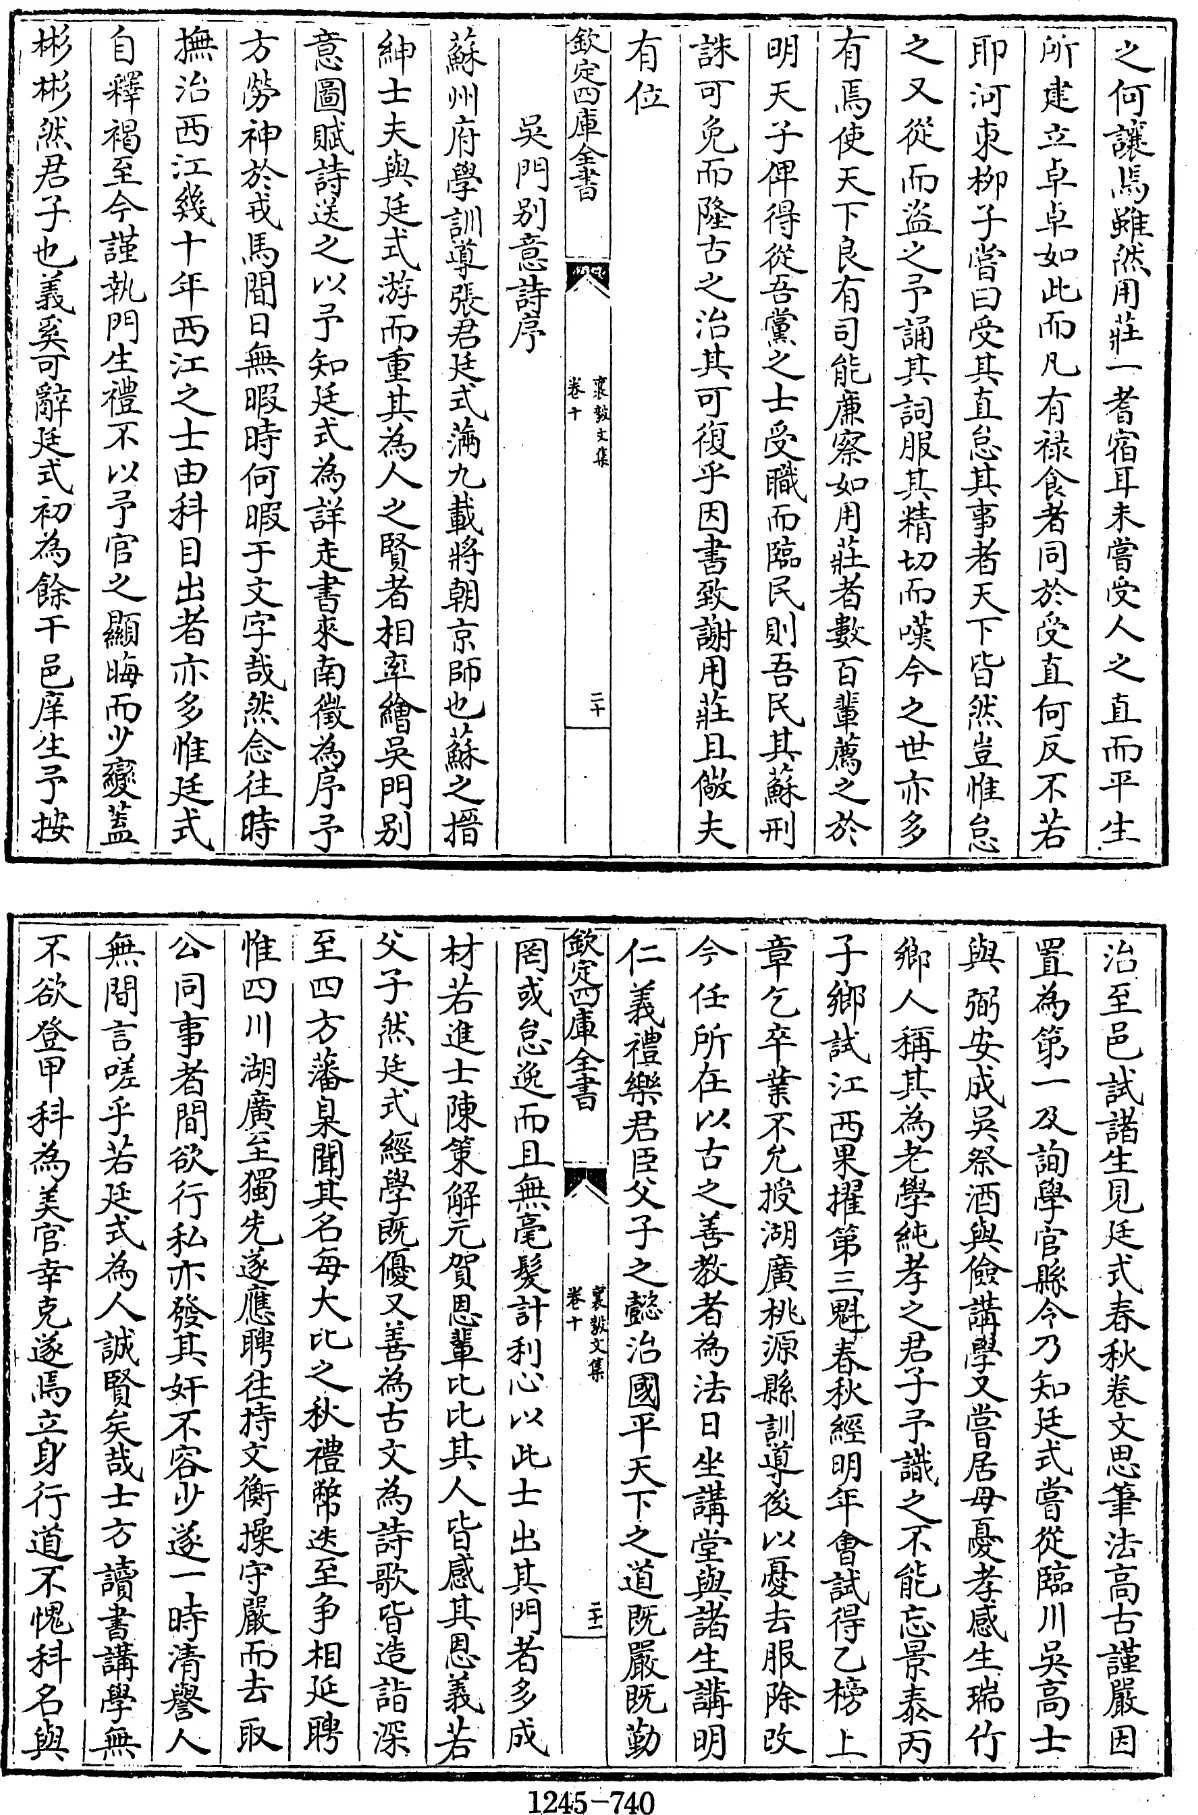 之何讓焉雖然用莊一耆宿耳未嘗受人之直而平生
所建立卓卓如此而凡有祿食者同於受直何反不若
耶河東柳子嘗曰受其直怠其事者天下皆然豈惟怠
之又從而盜之予誦其詞服其精切而嘆今之世亦多
有焉使天下良有司能廉察如用莊者數百輩薦之於
明天子俾得從吾黨之士受職而臨民則吾民其蘇刑
誅可免而隆古之治其可復乎因書致謝用莊且儆夫
有位
欽定四庫全書
襄毅文集
卷十
二十
吳門別意詩序
蘇州府學訓導張君廷式滿九載將朝京師也蘇之搢
紳士夫與廷式游而重其為人之賢者相率繪吳門別
意圖賦詩送之以予知廷式為詳走書來南徵為序予
方勞神於戎馬間日無暇時何暇于文字哉然念往時
撫治西江幾十年西江之士由科目出者亦多惟廷式
自釋褐至今謹執門生禮不以予官之顯晦而少變蓋
彬彬然君子也義奚可辭廷式初為餘干邑庠生予按
治至邑試諸生見廷式春秋卷文思筆法高古謹嚴因
置為第一及詢學官縣令乃知廷式嘗從臨川吳高士
與弼安成吳祭酒與儉講學又嘗居母憂孝感生瑞竹
鄉人稱其為老學純孝之君子予識之不能忘景泰丙
子鄉試江西果擢第三魁春秋經明年會試得乙榜上
章乞卒業不允授湖廣桃源縣訓導後以憂去服除改
今任所在以古之善教者為法日坐講堂與諸生講明
仁義禮樂君臣父子之懿治國平天下之道既嚴既勤
欽定四庫全書
襄毅文集
卷十
二十一
罔或怠逸而且無毫髮計利心以此士出其門者多成
材若進士陳策解元賀恩輩比比其人皆感其恩義若
父子然廷式經學既優又善為古文為詩歌皆造詣深
至四方藩臬聞其名每大比之秋禮幣迭至争相延聘
惟四川湖廣至獨先遂應聘往持文衡操守嚴而去取
公同事者間欲行私亦發其奸不容少遂一時清譽人
無間言嗟乎若廷式為人誠賢矣哉士方讀書講學無
不欲登甲科為美官幸克遂焉立身行道不愧科名與
1245-740